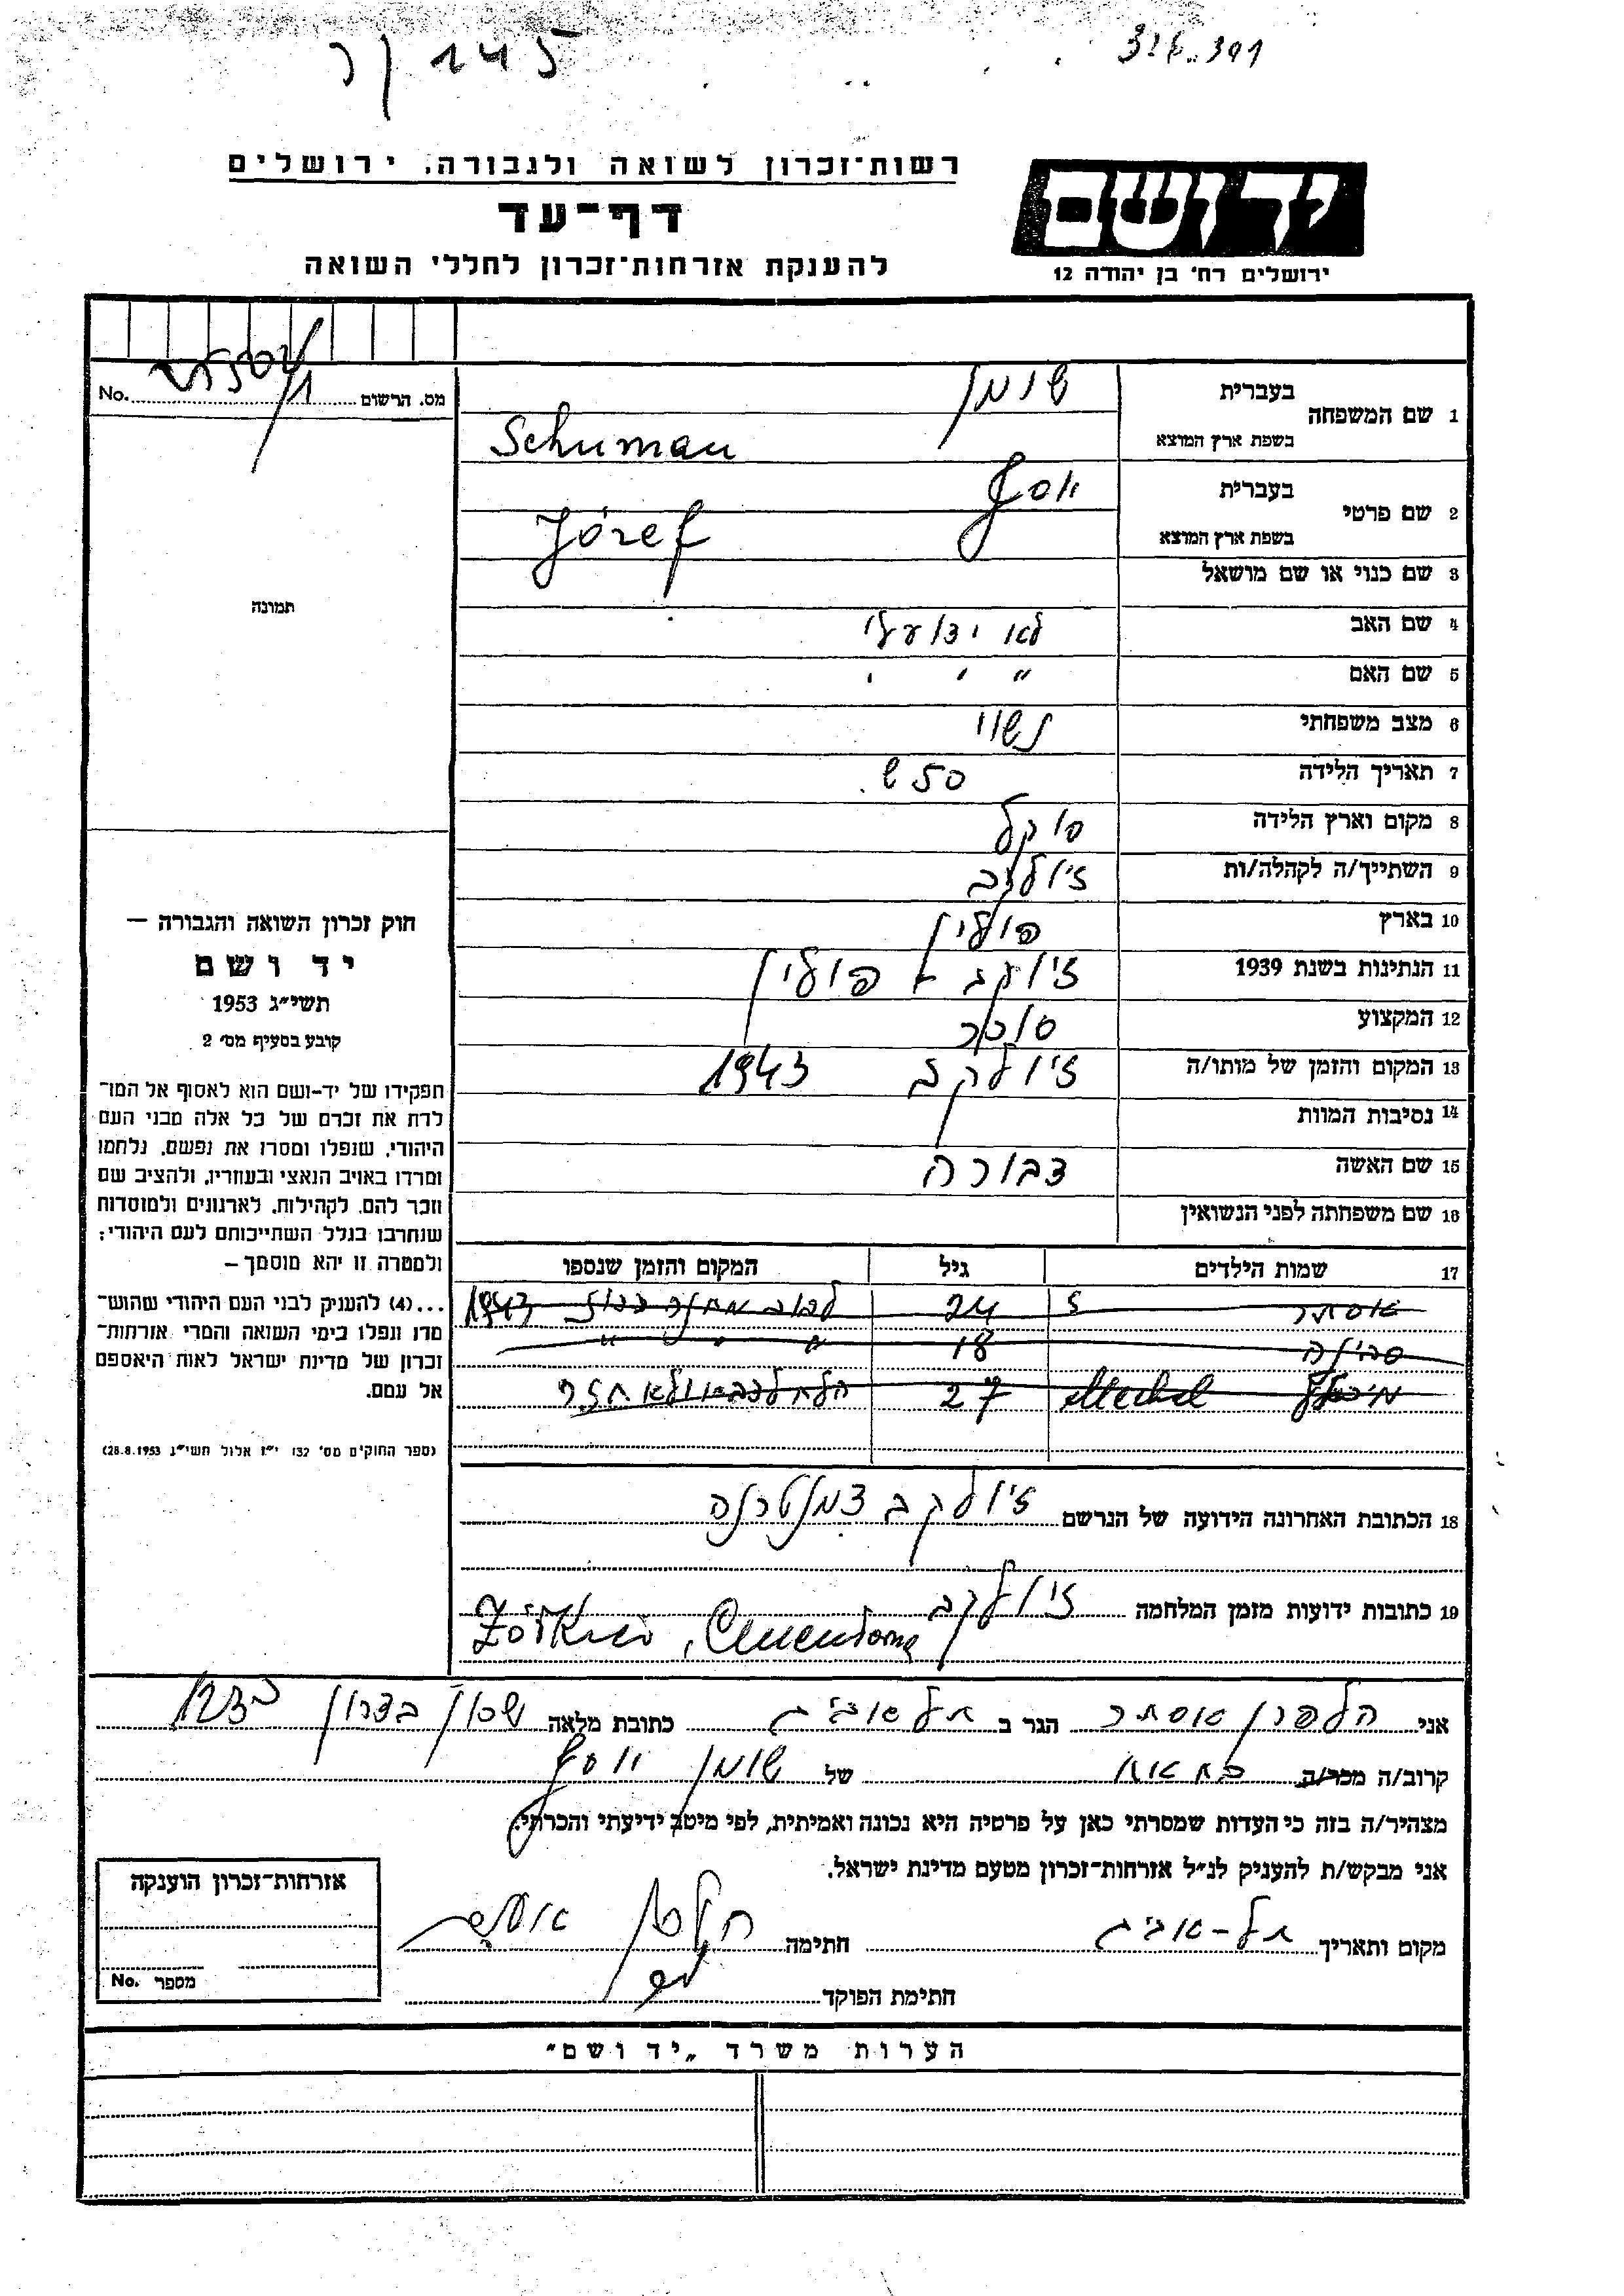 145 / ר
328.391
יד ושם
ירושלים רח' בן יהודה 12
רשות־זכרון לשואה ולגבורה, ירושלים
דף־עד
להענקת אזרחות־זכרון לחללי השואה
מס. הרשום No.
תמונה
חוק זכרון השואה והגבורה —
יד ושם
תשי"ג 1953
קובע בסעיף מס' 2
תפקידו של יד-ושם הוא לאסוף אל המו־
לדת את זכרם של כל אלה מבני העם
היהודי, שנפלו ומסרו את נפשם, נלחמו
ומרדו באויב הנאצי ובעוזריו, ולהציב שם
וזכר להם, לקהילות, לארגונים ולמוסדות
שנחרבו בגלל השתייכותם לעם היהודי;
ולמטרה זו יהא מוסמך —
...(4) להענק לבני העם היהודי שהוש־
מדו ונפלו בימי השואה והמרי אזרחות־
זכרון של מדינת ישראל לאות היאספם
אל עמם.
(ספר החוקים מס' 132 י"ז אלול תשי"ג 28.8.1953)
1 שם המשפחה בעברית שומן
בשפת ארץ המוצא Schuman
2 שם פרטי בעברית יוסף
בשפת ארץ המוצא Józef
3 שם כנוי או שם מושאל
4 שם האב לא ידוע לי
5 שם האם " " "
6 מצב משפחתי נשוי
7 תאריך הלידה 50 ש.
8 מקום וארץ הלידה סוקל
9 השתייך/ה לקהלה/ות
10 בארץ פולין
11 הנתינות בשנת 1939 פולין
12 המקצוע סוחר
13 המקום והזמן של מותו/ה ז'ולקב 1943
14 נסיבות המוות
15 שם האשה דבורה
16 שם משפחתה לפני הנשואין
17 שמות הילדים גיל המקום והזמן שנספו
אסתר 24 1943
18 " " "
Mechel 27 הלך לצבא ולא חזר
18 הכתובת האחרונה הידועה של הנרשם ז'ולקב
19 כתובות ידועות מזמן המלחמה ז'ולקב
Żółkiew,
אני הלפרן אסתר הגר ב תל אביב כתובת מלאה שכון בצרון
קרוב/ה מכר/ה של שומן יוסף
מצהיר/ה בזה כי העדות שמסרתי כאן על פרטיה היא נכונה ואמיתית, לפי מיטב ידיעתי והכרתי.
אני מבקש/ת להעניק לנ"ל אזרחות־זכרון מטעם מדינת ישראל.
מקום ותאריך תל-אביב חתימה הלפרן אסתר
חתימת הפוקד
אזרחות־זכרון הוענקה
מספר No.
הערות משרד „יד ושם"